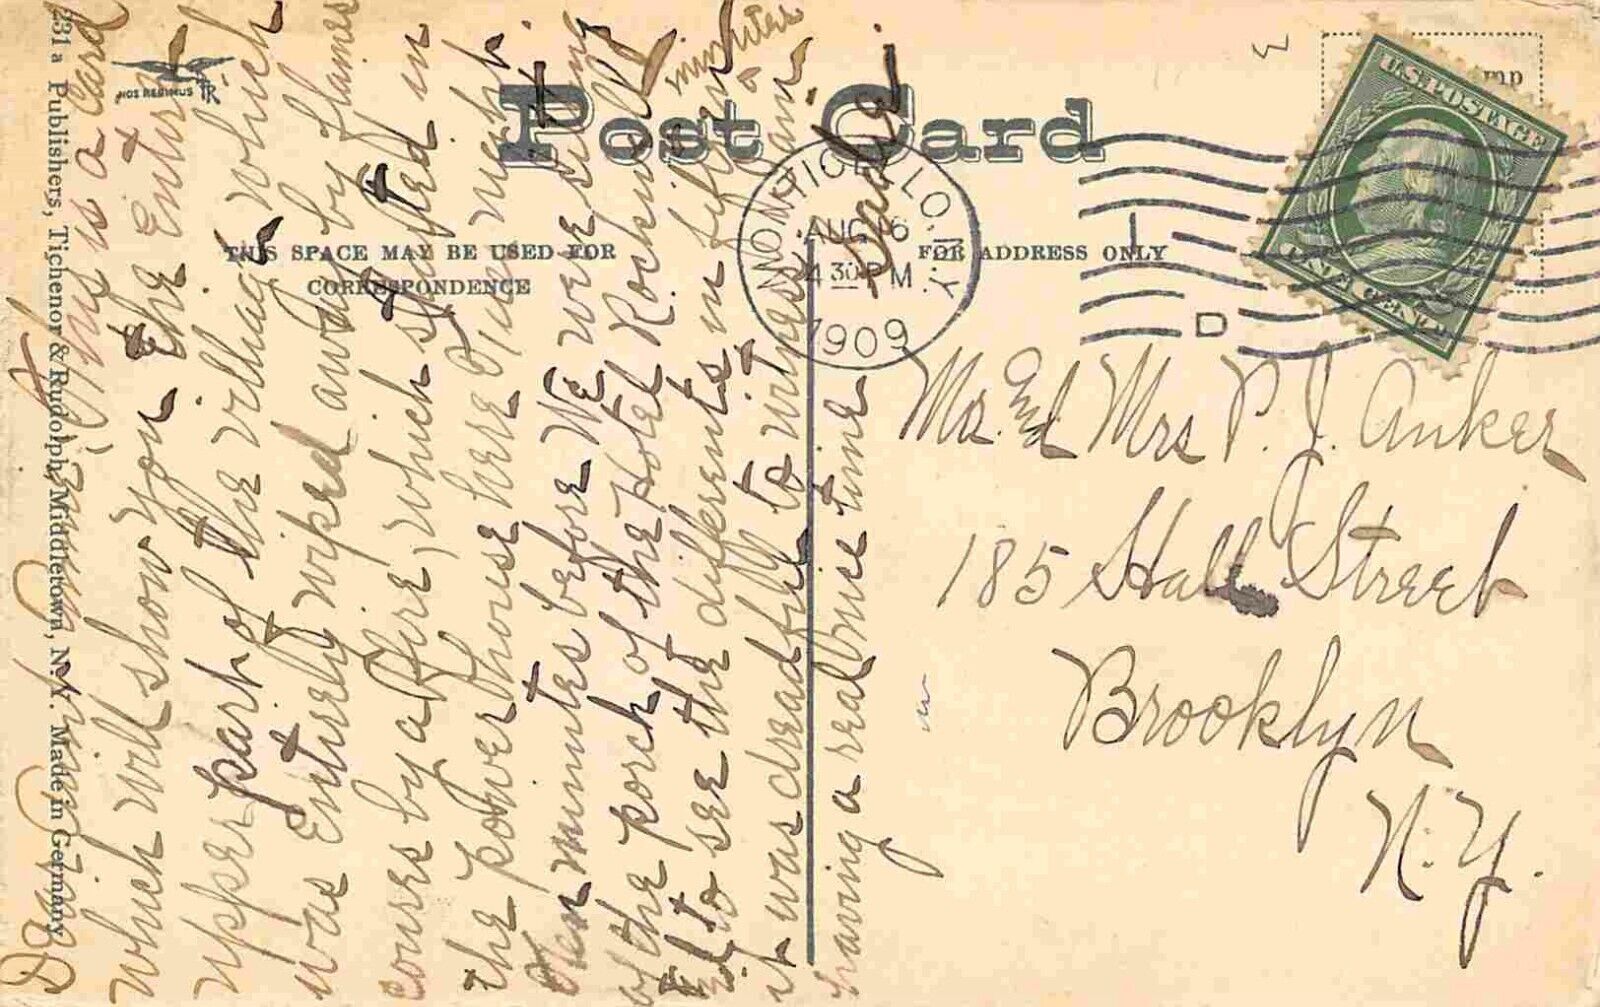 Post Card
THIS SPACE MAY BE USED FOR
CORRESPONDENCE
FOR ADDRESS ONLY
231 a Publishers, Tichenor & Rudolph, Middletown, N.Y. Made in Germany
NOS REGIMUS
U.S. POSTAGE
ONE CENT
MONTICELLO, N.Y.
AUG 16
4 30 PM
1909
D
This is a card
which will show you the Entire
upper part of the village which
was Entirely wiped away by flames
courses by a fire, which started in
the power house here Mon night.
Ten minutes before We were sitting
of the porch of the Hotel Rockwell
to see the differents in fifteen minutes
it was dreadful to witness. I am
having a real nice time
Sadie
Mr. End Mrs P. J. Anker
185 Hall Street
Brooklyn
N.Y.